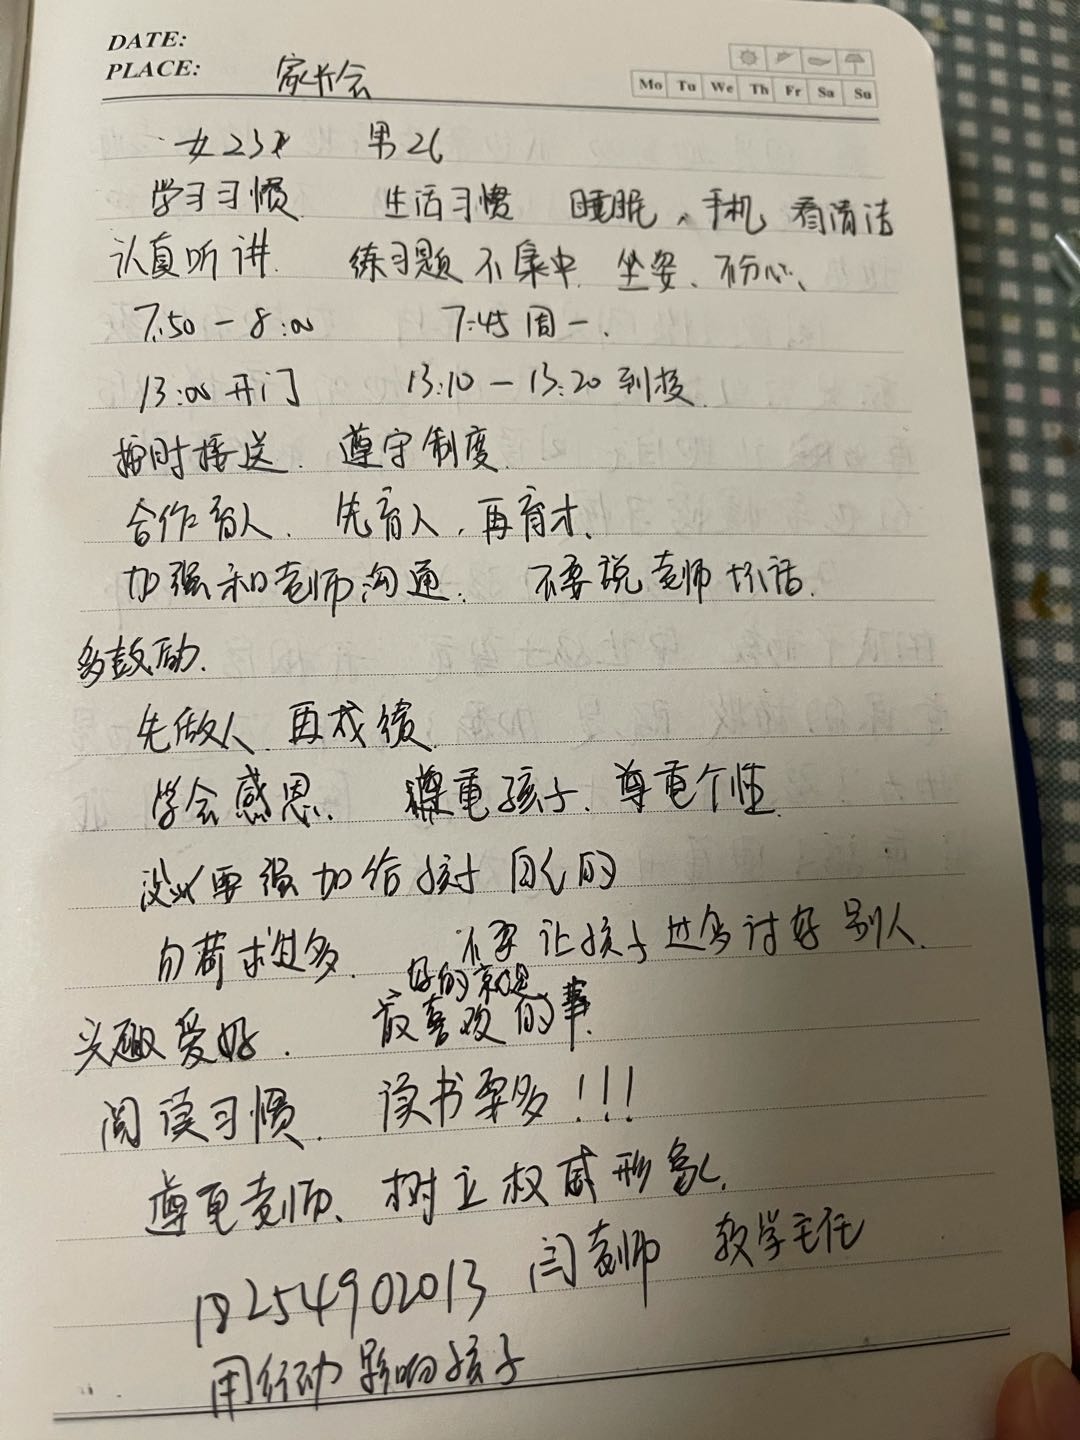 DATE:
PLACE: 家长会
Mo Tu We Th Fr Sa Su
女23 男26
学习习惯 生活习惯 睡眠、手机 看清洁
认真听讲. 练习题不集中. 坐姿、不分心、
7:50－8:00 7:45周一.
13:00开门 13:10－13:20到校.
按时接送. 遵守制度.
合作育人. 先育人,再育才、
加强和老师沟通. 不要说老师坏话.
多鼓励.
先做人.再成绩.
学会感恩. 尊重孩子.尊重个性.
要强加给孩子自己的
勿苛求过多. 不要让孩子过多讨好别人.
好的就是
兴趣爱好. 最喜欢的事.
阅读习惯. 读书要多!!!
尊重老师、树立权威形象.
18254902013 闫老师 教学主任
用行动影响孩子